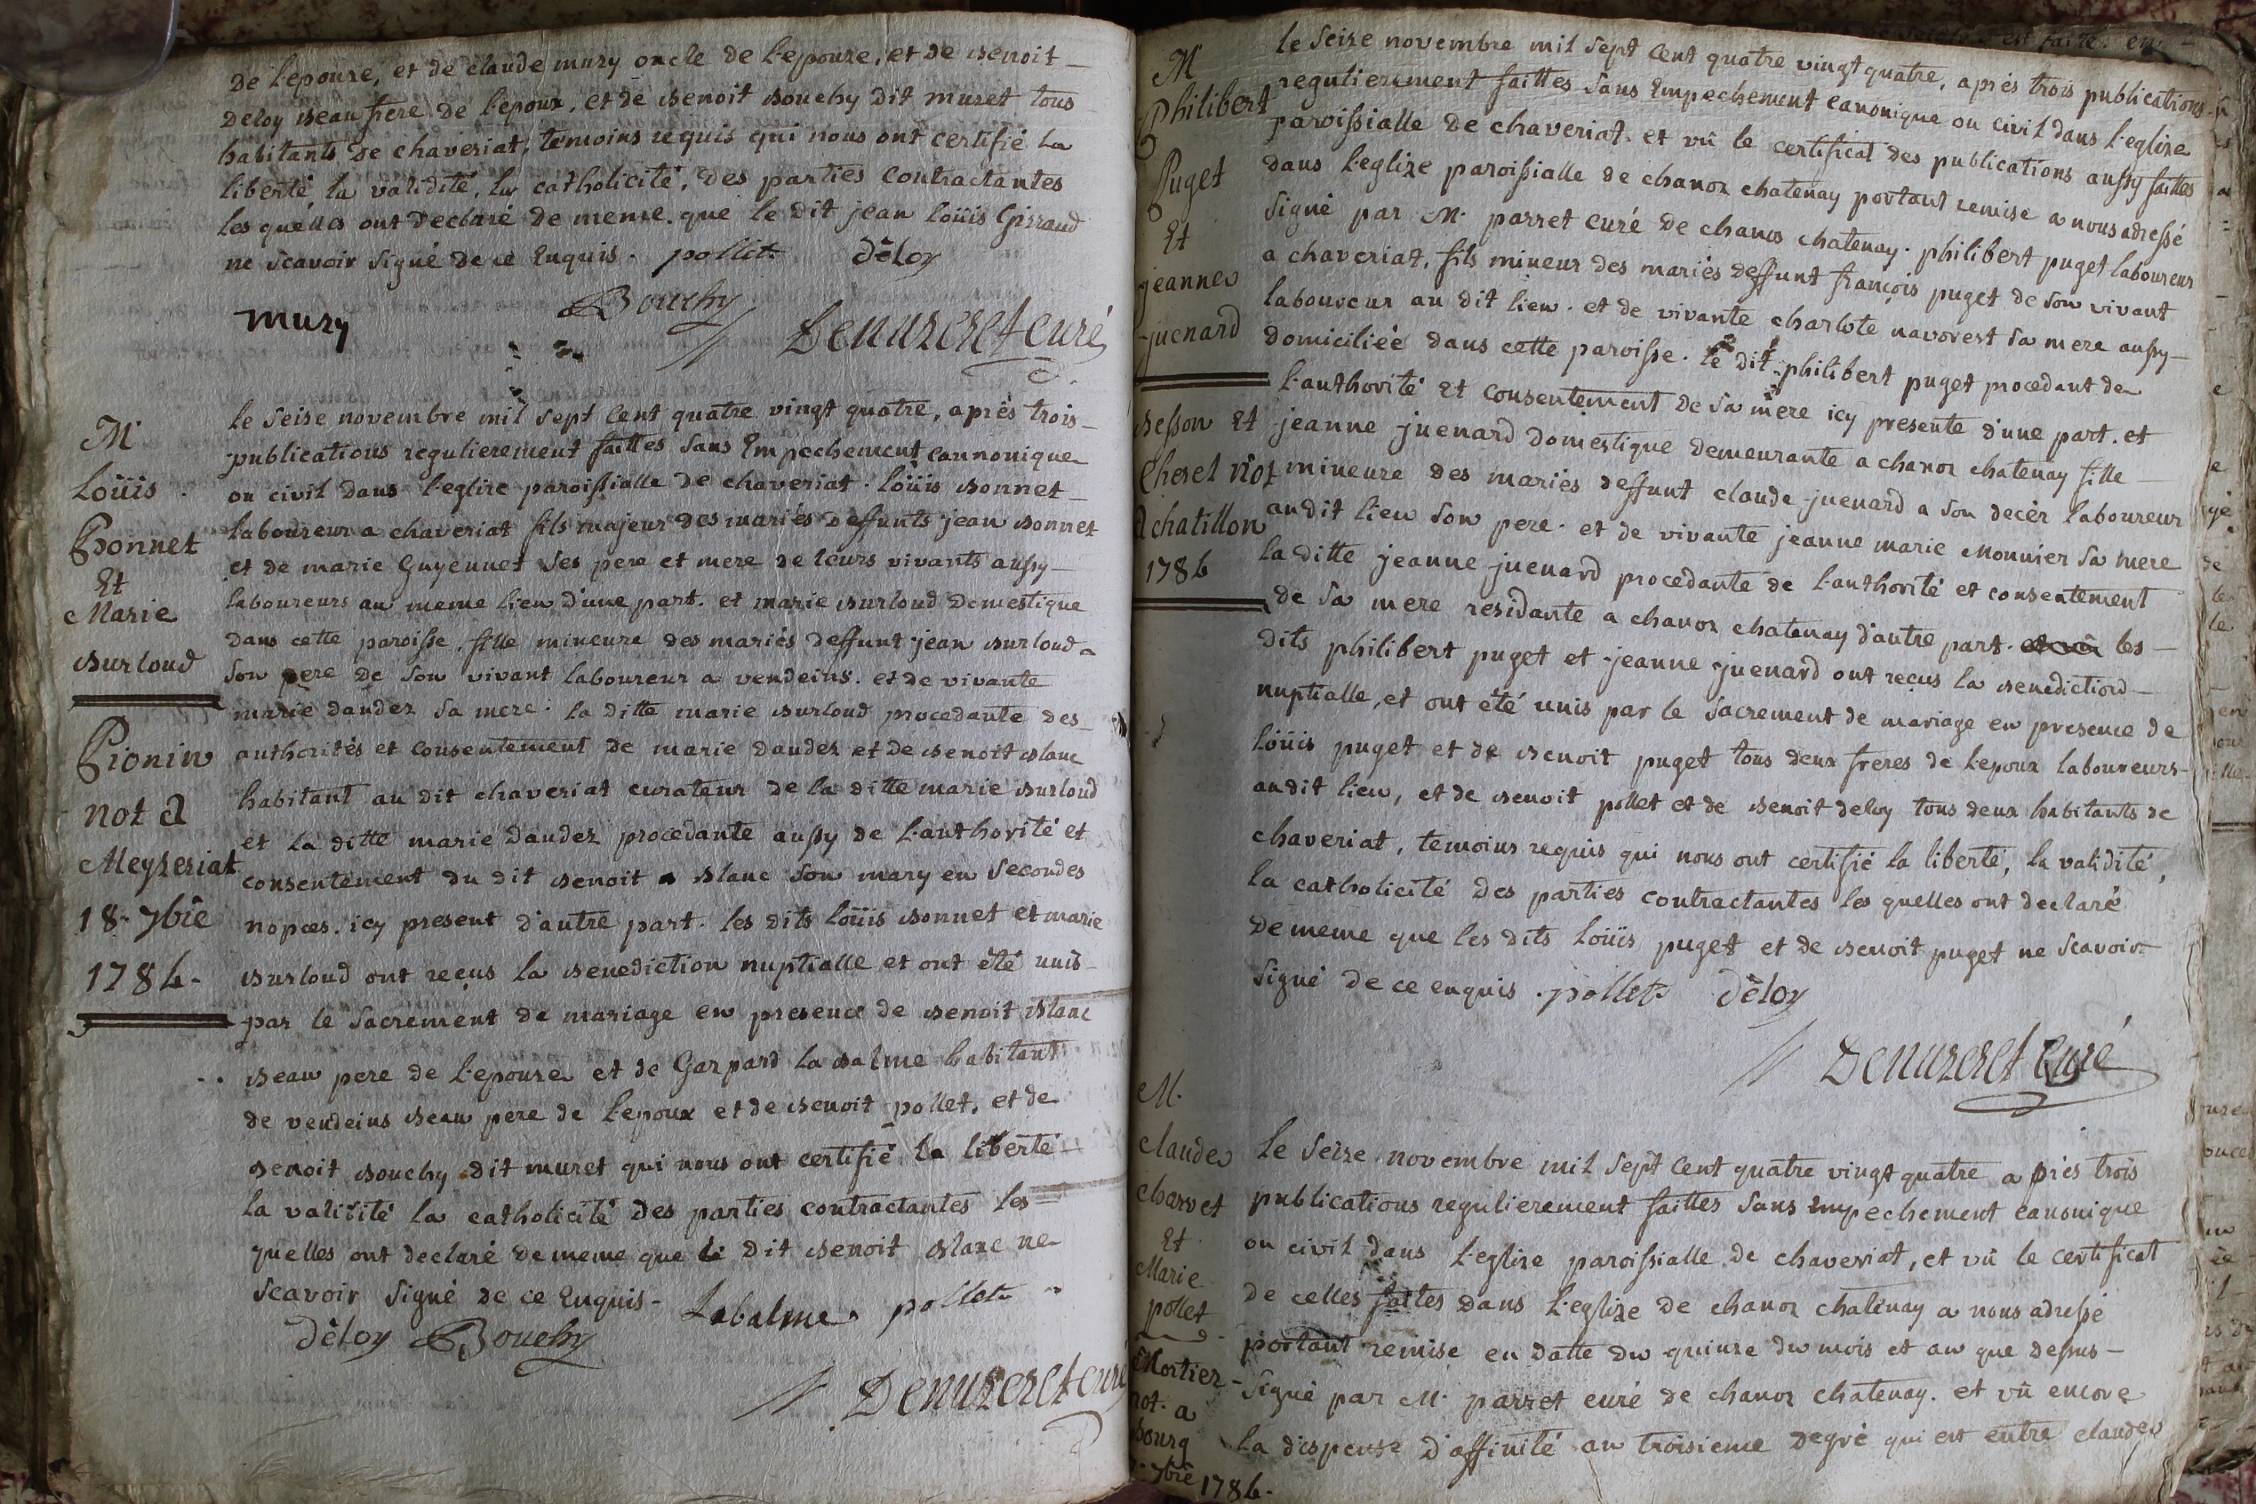 de l'epouse, et de claude mury oncle de l'epouse, et de Benoit
deloy Beau frere de l'epoux, et de Benoit Bouchy dit muret tous
habitants de chaveriat, temoins requis qui nous ont certifié la
liberté, la validité, la catholicité, des parties contractantes
les quelles ont declaré de meme que le dit jean loüis Girraud
ne scavoir signé de ce Enquis. pollet dêloy
Bouchy
mury Denuzeret curé
M.
Loüis
Bonnet
Et
Marie
Burloud
le seise novembre mil sept cent quatre vingt quatre, après trois
publications regulierement faittes sans Empechement cannonique
ou civil dans l'eglise paroissialle de chaveriat. loüis Bonnet
laboureur a chaveriat fils majeur des mariés deffunts jean Bonnet
et de marie Guyennet ses pere et mere de leurs vivants aussy
laboureurs au meme lieu d'une part. et marie Burloud Domestique
dans cette paroisse, fille mineure des mariés deffunt jean Burloud
son pere de son vivant laboureur a vendeins. et de vivante
marie daudez sa mere. la ditte marie Burloud procedante des
Pionin
not a
Meyzeriat
18 7bre
1784.
authorités et consentement de marie daudez et de Benoit Blanc
habitant au dit chaveriat curateur de la ditte marie Burloud
et la ditte marie daudez procedante aussy de l'authorité et
consentement du dit Benoit Blanc son mary en secondes
nopces. icy present d'autre part. les dits loüis Bonnet et marie
Burloud ont reçus la Benediction nuptialle et ont êté unis
par le sacrement de mariage en presence de Benoit Blanc
Beau pere de l'epouse et de Gaspard la Balme habitant
de vendeins Beau pere de l'epoux et de Benoit pollet, et de
Benoit Bouchy dit muret qui nous ont certifié la liberté
la validité la catholicité des parties contractantes les
quelles ont declaré de meme que le dit Benoit Blanc ne
scavoir signé de ce Enquis. Labalme pollet
dêloy Bouchy
Denuzeret curé
M
Philibert
Puget
Et
jeanne
juenard
le seise novembre mil sept cent quatre vingt quatre, après trois publications
regulierement faittes sans Empechement canonique ou civil dans l'eglize
paroissialle de chaveriat. et vû le certificat des publications aussy faittes
dans l'eglize paroissialle de chanoz chatenay portant remise a nous adressé
signé par M. parret curé de chanos chatenay. philibert puget laboureur
a chaveriat, fils mineur des mariés deffunt françois puget de son vivant
laboureur au dit lieu. et de vivante charlote navorest sa mere aussy
domiciliée dans cette paroisse. le dit philibert puget procedant de
l'authorité et consentement de sa mere icy presente d'une part. et
Besson Et
Cherel not
a chatillon
1784
jeanne juenard domestique demeurante a chanoz chatenay fille
mineure des mariés deffunt claude juenard a son decér laboureur
audit lieu son pere. et de vivante jeanne marie Monnier sa mere
la ditte jeanne juenard procedante de l'authorité et consentement
de sa mere residante a chanoz chatenay d'autre part. les
dits philibert puget et jeanne juenard ont reçus la Benediction
nuptialle, et ont été unis par le sacrement de mariage en presence de
loüis puget et de Benoit puget tous deux freres de l'epoux laboureurs
audit lieu, et de Benoit pollet et de Benoit deloy tous deux habitants de
chaveriat, temoins requis qui nous ont certifié la liberté, la validité,
la catholicité des parties contractantes les quelles ont declaré
de meme que les dits loüis puget et de Benoit puget ne scavoir
signé de ce enquis. pollet dêloy
Denuzeret curé
M.
claude
charvet
Et
Marie
pollet
Mortier
not. a
Bourg
7bre 1784.
le seise novembre mil sept cent quatre vingt quatre après trois
publications regulierement faittes sans Empechement canonique
ou civil dans l'eglize paroissialle de chaveriat, et vû le certificat
de celles faites dans l'eglize de chanoz chatenay a nous adressé
portant remise en datte du quinze du mois et an que dessus
signé par M. parret curé de chanoz chatenay. et vû encore
la dispense d'affinité au troisieme degré qui est entre claude